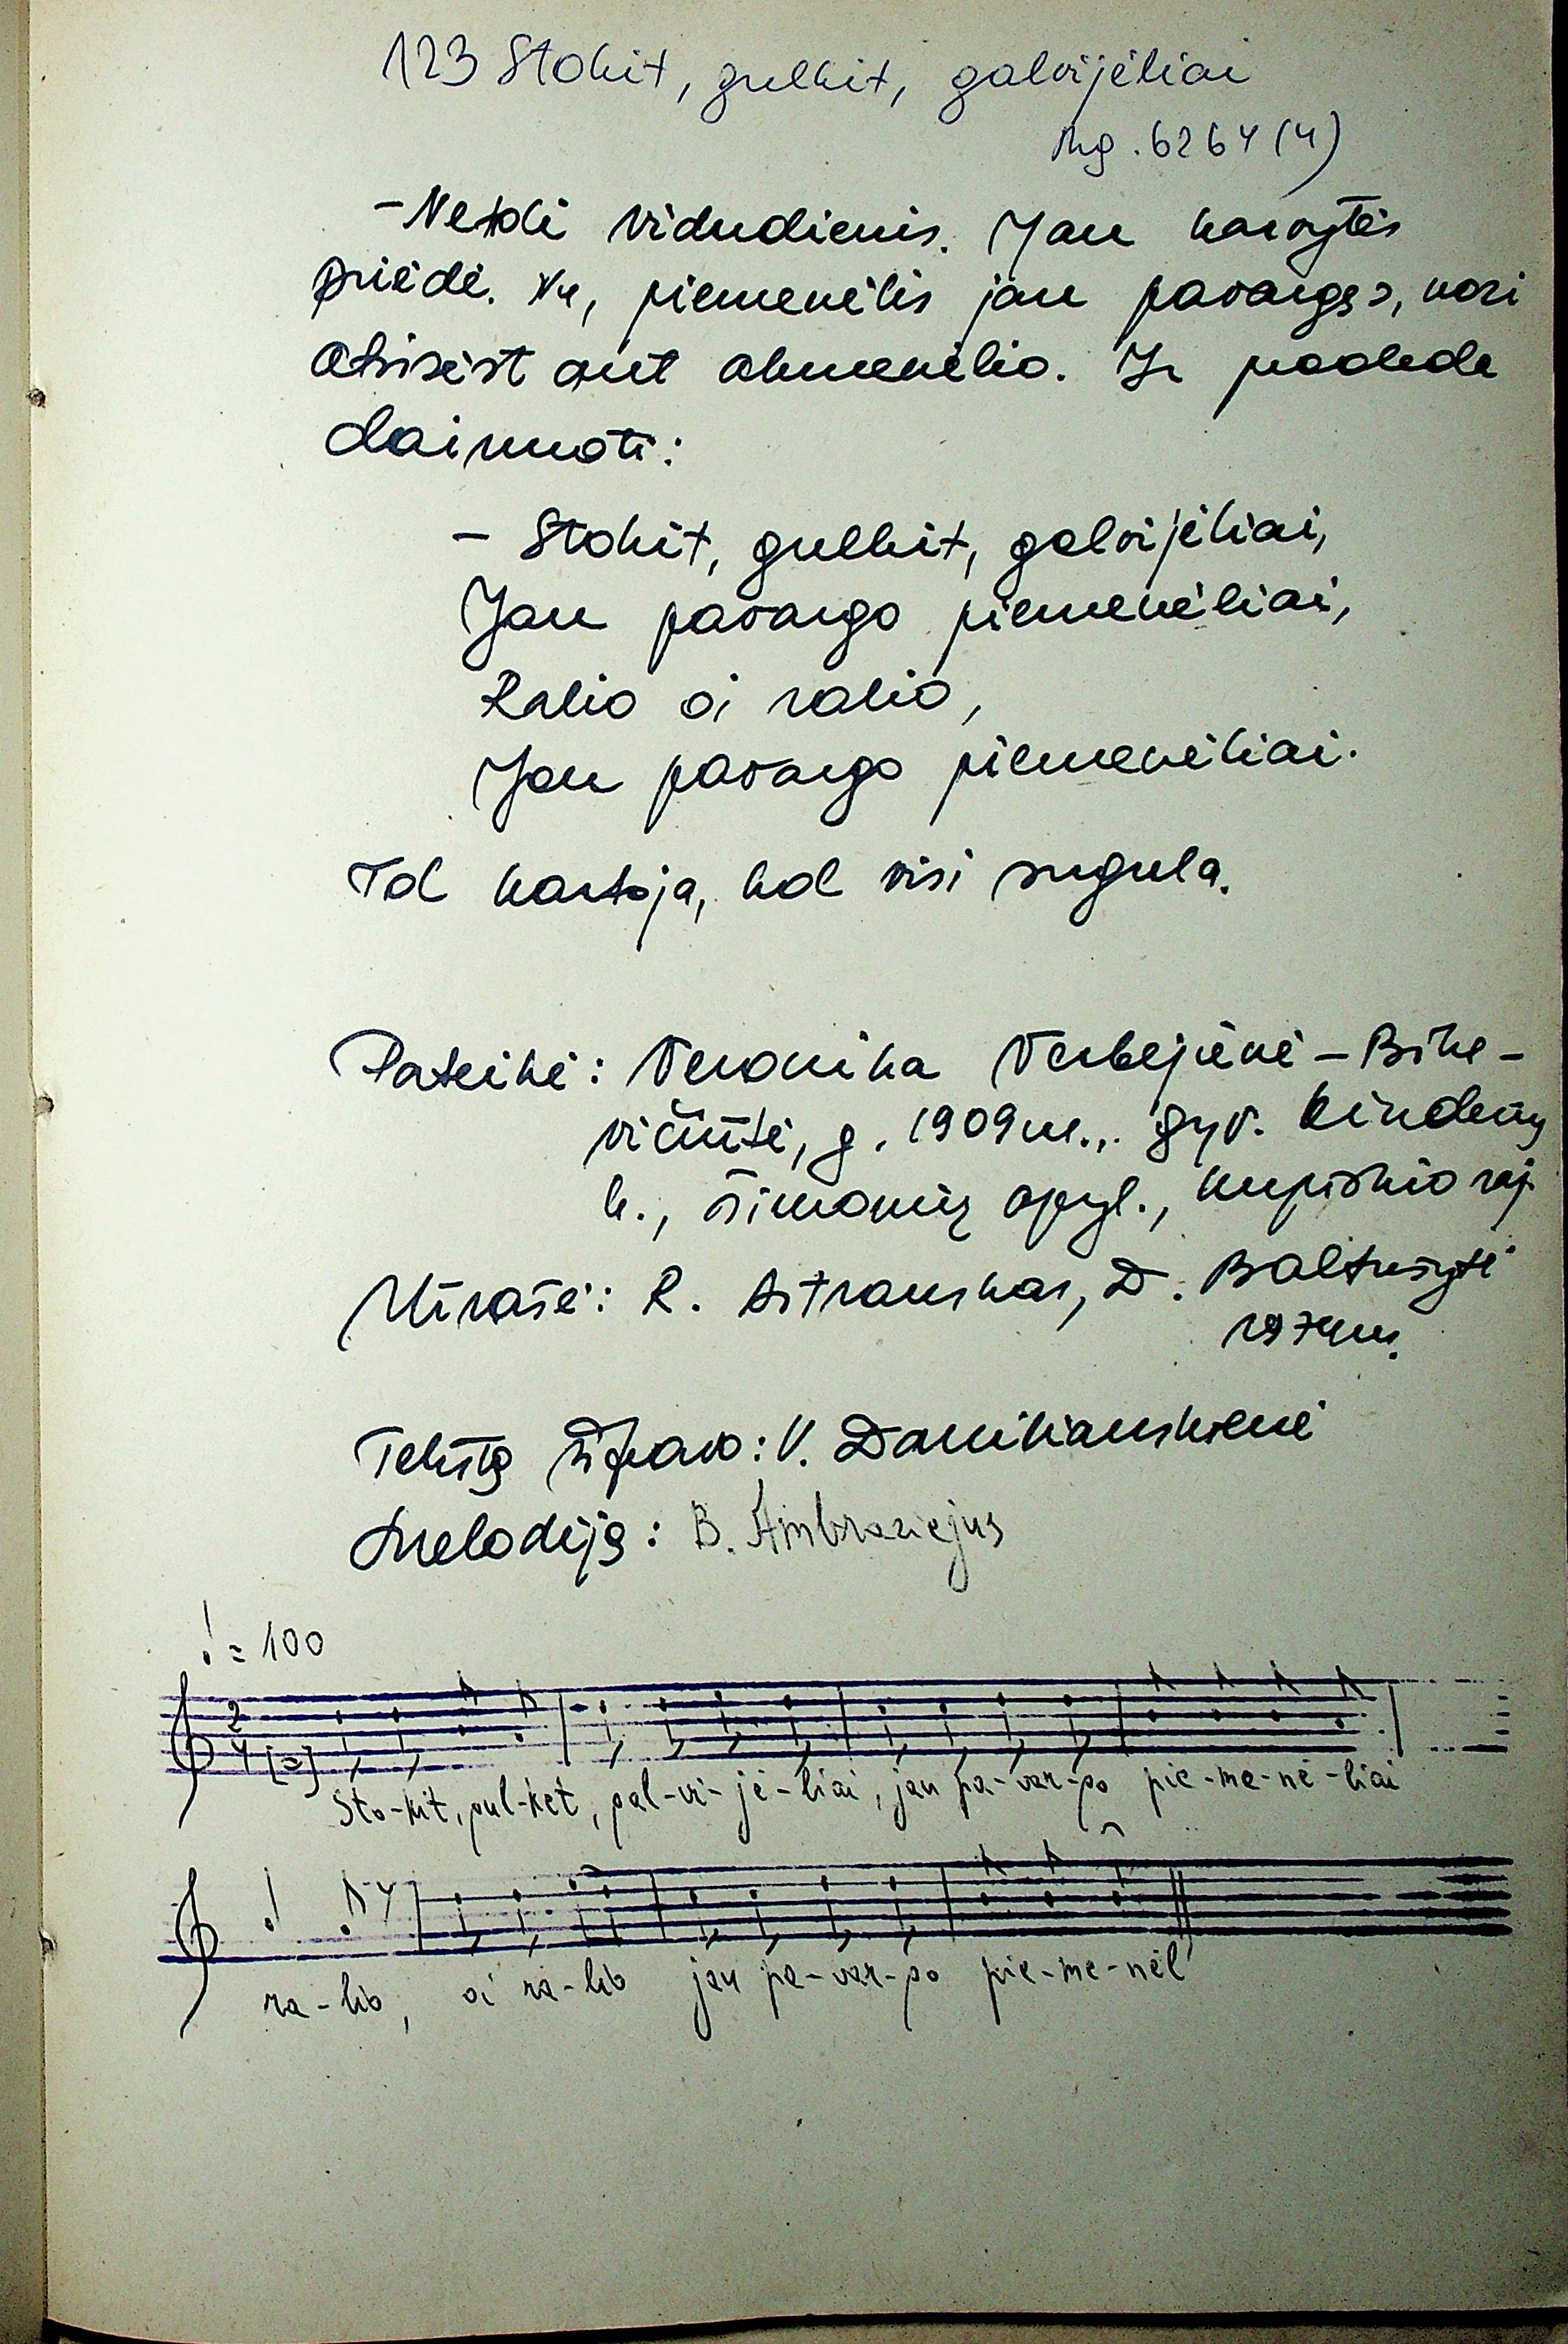 123 Stokit, gulkit, galvijėliai
Mg. 6264 (4)
- Netoli vidudienis. Jau karvytės
priėdė. Nu, piemenėlis jau pavargęs, nori
atsisėst ant akmenėlio. Ir pradeda
dainuoti:
- Stokit, gulkit, galvijėliai,
Jau pavargo piemenėliai,
Ralio oi ralio,
Jau pavargo piemenėliai.
Tol kartoja, kol visi sugula.
Pateikė: Veronika Verbejienė - Bike-
vičiūtė, g. 1909 m., gyv.
k., Šimonių apyl., Kupiškio raj.
Užrašė: R. Astrauskas, D. Baltušytė
1974 m.
Tekstą šifravo: V. Daniliauskienė
Melodiją: B. Ambraziejus
= 100
2
4
Sto-kit, gul-kit, gal-vi-jė-liai, jau pa-var-go pie-me-nė-liai
ra-lio, oi ra-lio jau pa-var-go pie-me-nėl'